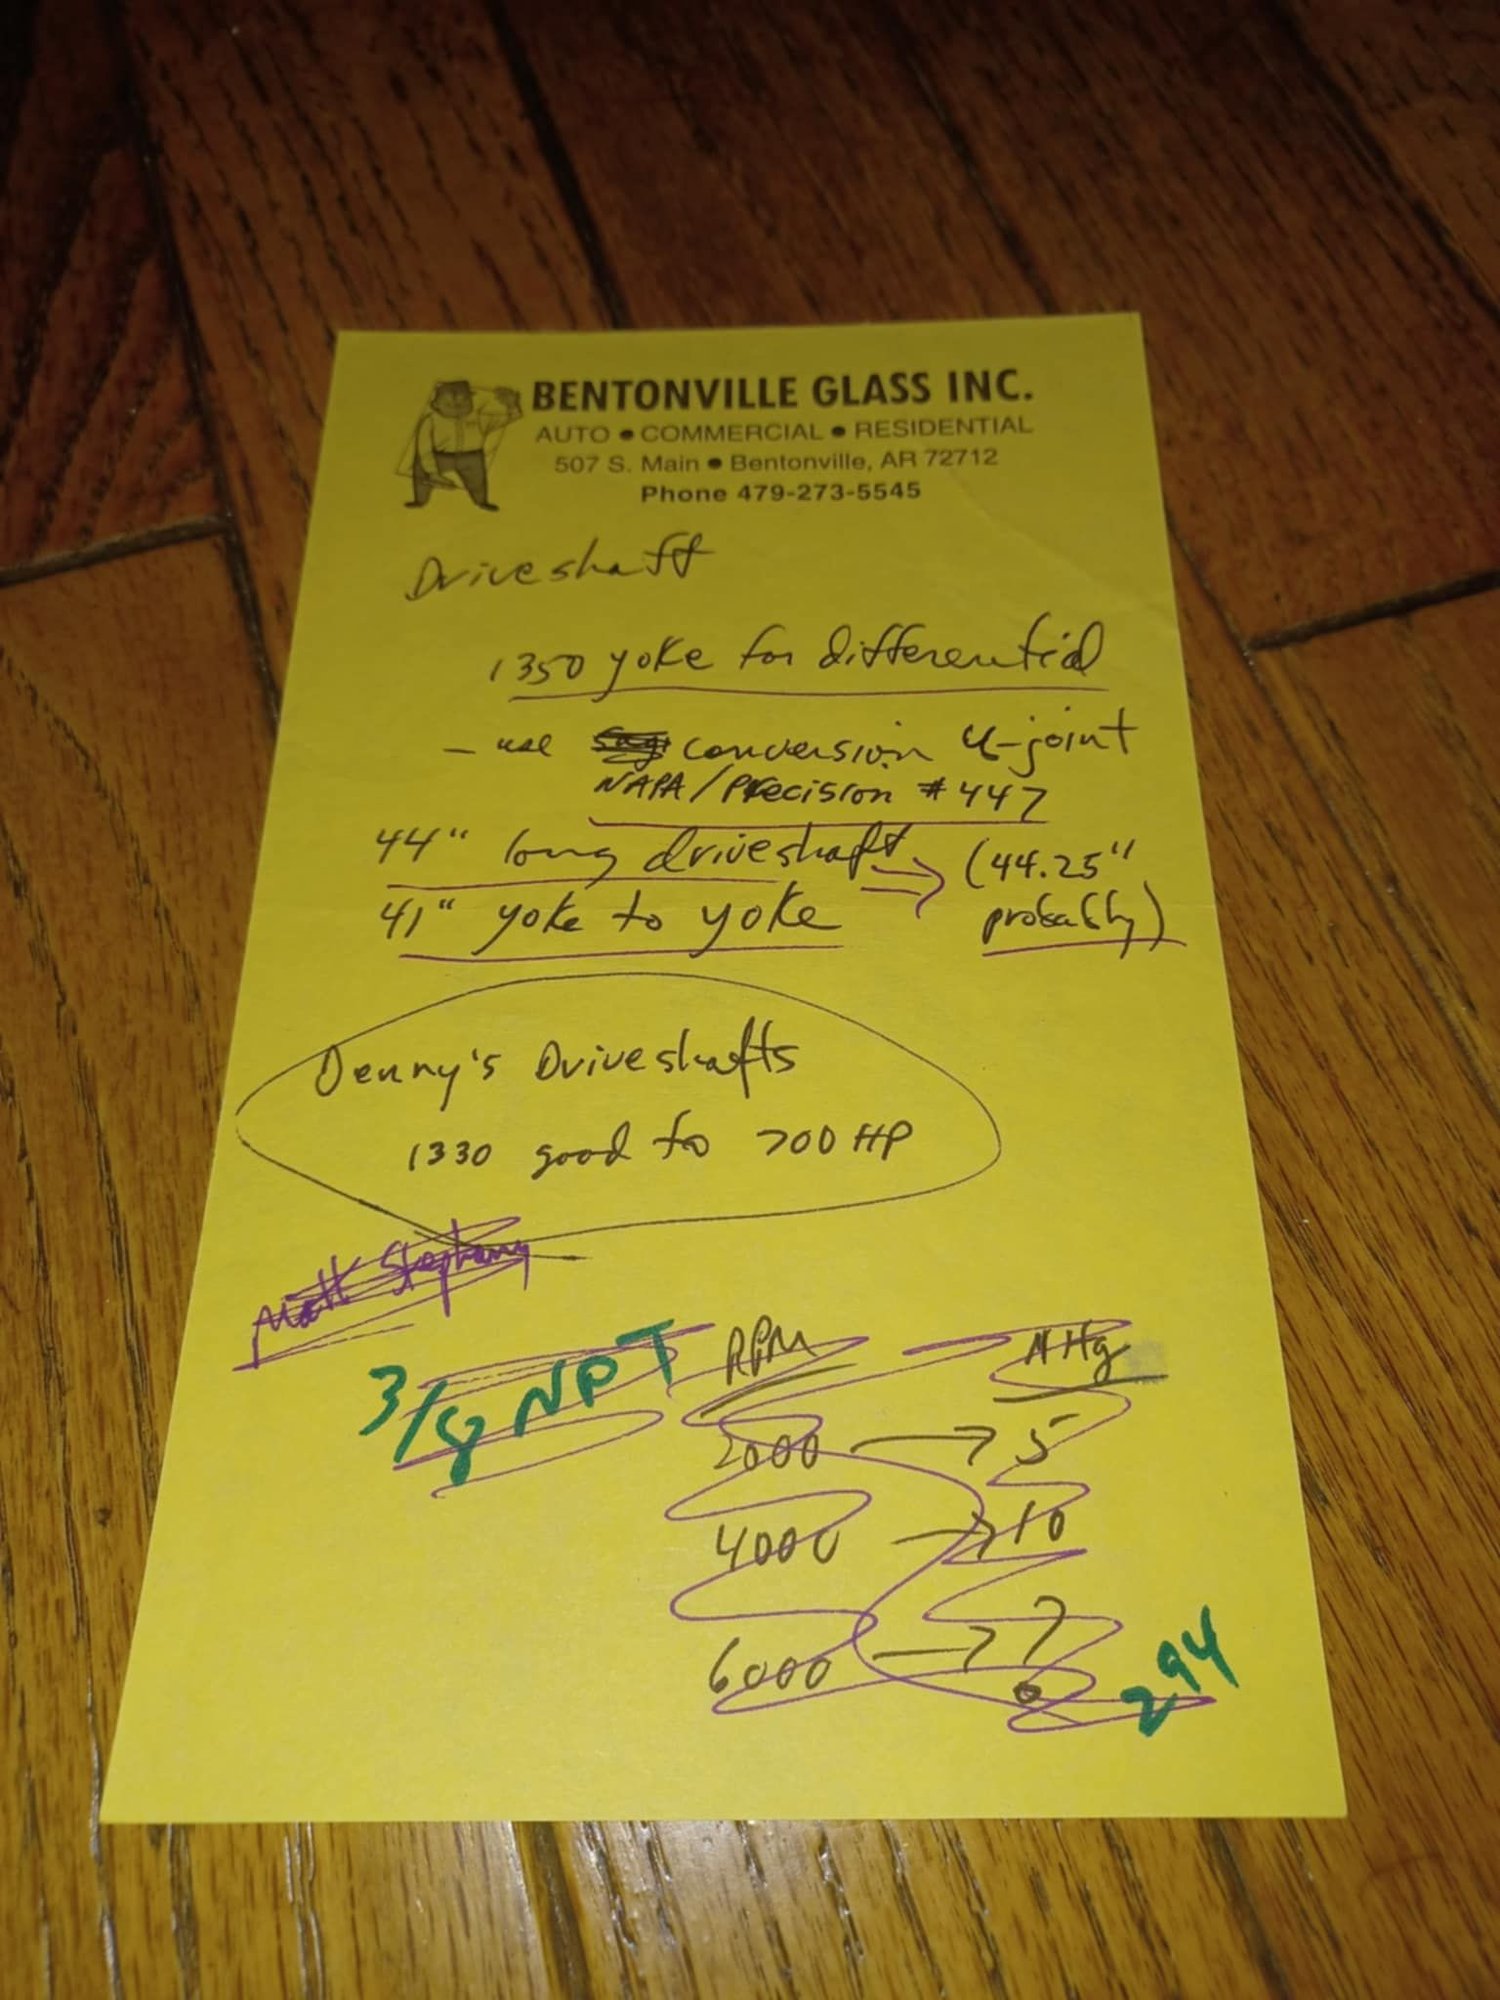 BENTONVILLE GLASS INC.
AUTO • COMMERCIAL • RESIDENTIAL
507 S. Main • Bentonville, AR 72712
Phone 479-273-5545
Driveshaft
1350 yoke for differential
– use conversion u-joint
NAPA/Precision #447
44" long driveshaft => (44.25"
probably)
41" yoke to yoke
Denny's Driveshafts
1330 good to 700 HP
Matt
3/8 NPT
RPM Hg
2000 → 5
4000 → 10
6000 → ?
294